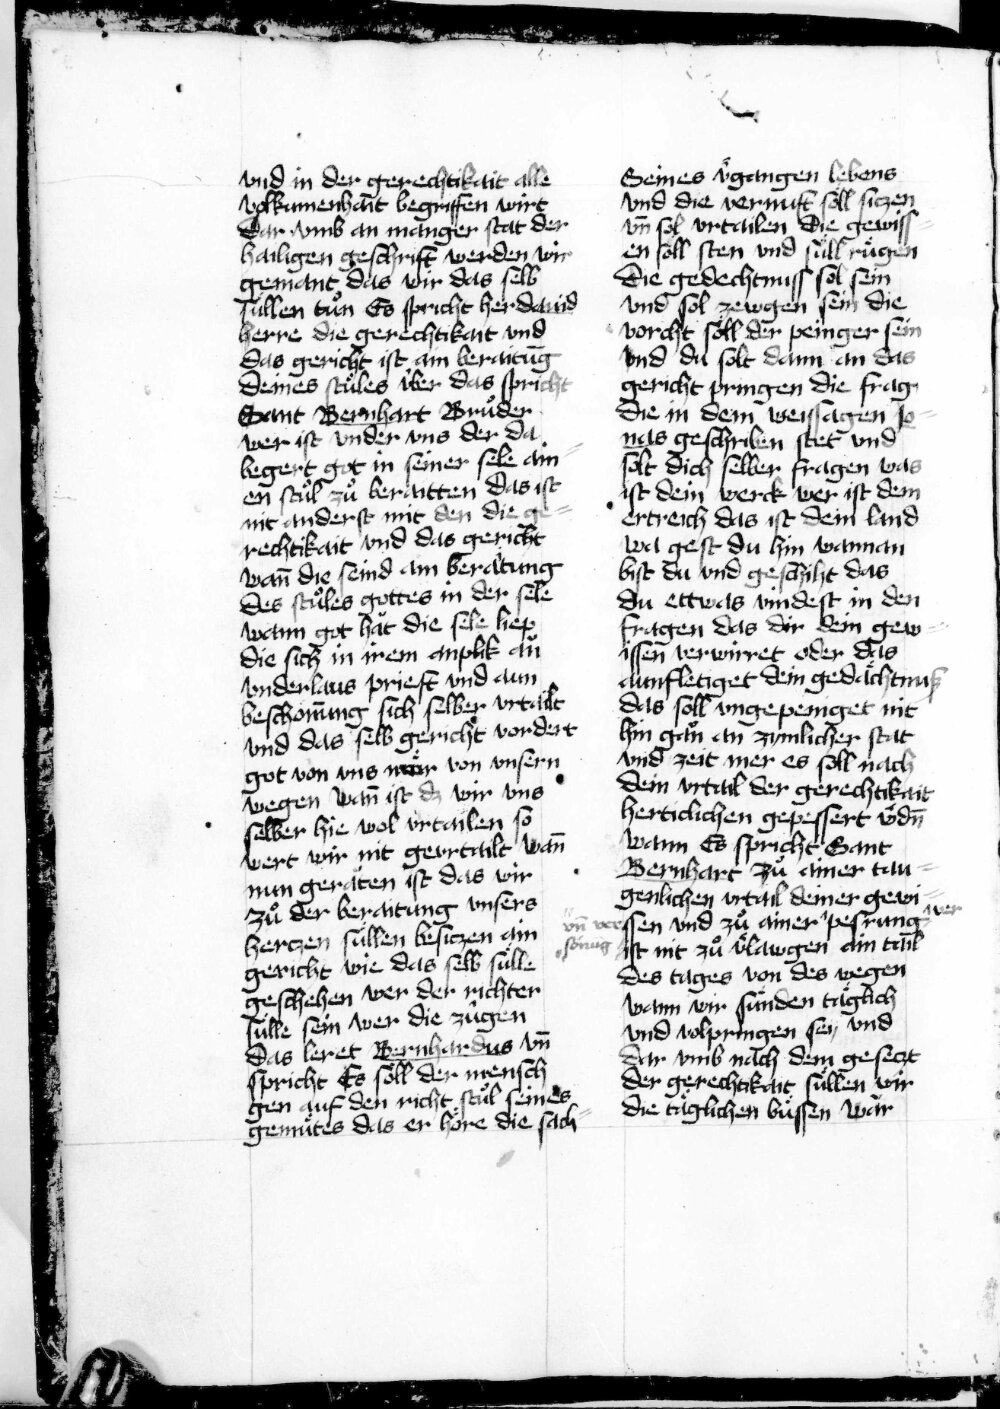 vnd in der gerechtikait alle
volkumenhait begriffen wirt
Dar vmb an manger stat der
hailigen geschrift werden wir
gemant das wir das selb
süllen tůn Es spricht her dauid
herre die gerechtikait vnd
das gericht ist ain beraitūg
deines stůles über das spricht
Sant Bernhart Brůder
wer ist vnder vns der da
begert got in seiner sele ain=
en stůl zů beraitten das ist
nit anderst mit den die ge=
rechtikait vnd das gericht
wan̄ die seind ain beraitung
des stůles gottes in der sele
wann got hät die sele liep
die sich in irem anplik an
vnderlaus prieft vnd aun
beschonūng sich selber vrtailt
vnd das selb gericht vordert
got von vns von vnsern
wegen wan̄ ist dz wir vns
selber hie wol vrtailen so
wert wir nit geurtailt wan̄
nun geräten ist das wir
zů der beraitung vnsers
herczen süllen besiczen ain
gericht wie das selb sülle
geschehen wer der richter
sülle sein wer die zügen
Das leret Bernhardus vn̄
spricht Es soll der mensch
gen auf den richt stůl seines
gemütes das er höre die sach=
Seines v̈gangen lebens
vnd die vernuft söll siczen
vn̄ sol vrtailen Die gewiss=
en soll sten vnd süll rügen
Die gedechtnuss sol sein
vnd sol zewgen sein die
vorcht söll der peinger sein
vnd du solt dann an das
gericht pringen die frag
die in dem weissagen Jo=
nas geschriben stet vnd
solt dich selber fragen was
ist dein werck wer ist dein
ertreich das ist dein land
wa gest du hin wannan
bist du vnd geschiht das
du ettwas vindest in den
fragen das dir dein gew=
issen verwirret oder das
aunfletiget dein gedächtnuß
das soll vngepeniget nit
hin gän an zymlicher stat
vnd zeit mer es soll nach
dem vrtail der gerechtikait
herticlichen gepessert v̈dn̄
wann Es spricht Sant
Bernhart zů ainer tau=
genlichen vrtail deiner gewi=
ssen vnd zů ainer pesrung wer
vn̄ ver
sönung
ist nit zů v̈lawgen ain tail
des tages von des wegen
wann wir sünden täglich
vnd volpringen sey vnd
dar vmb nach dem geseczt
der gerechtikait süllen wir
die täglichen büssen wär